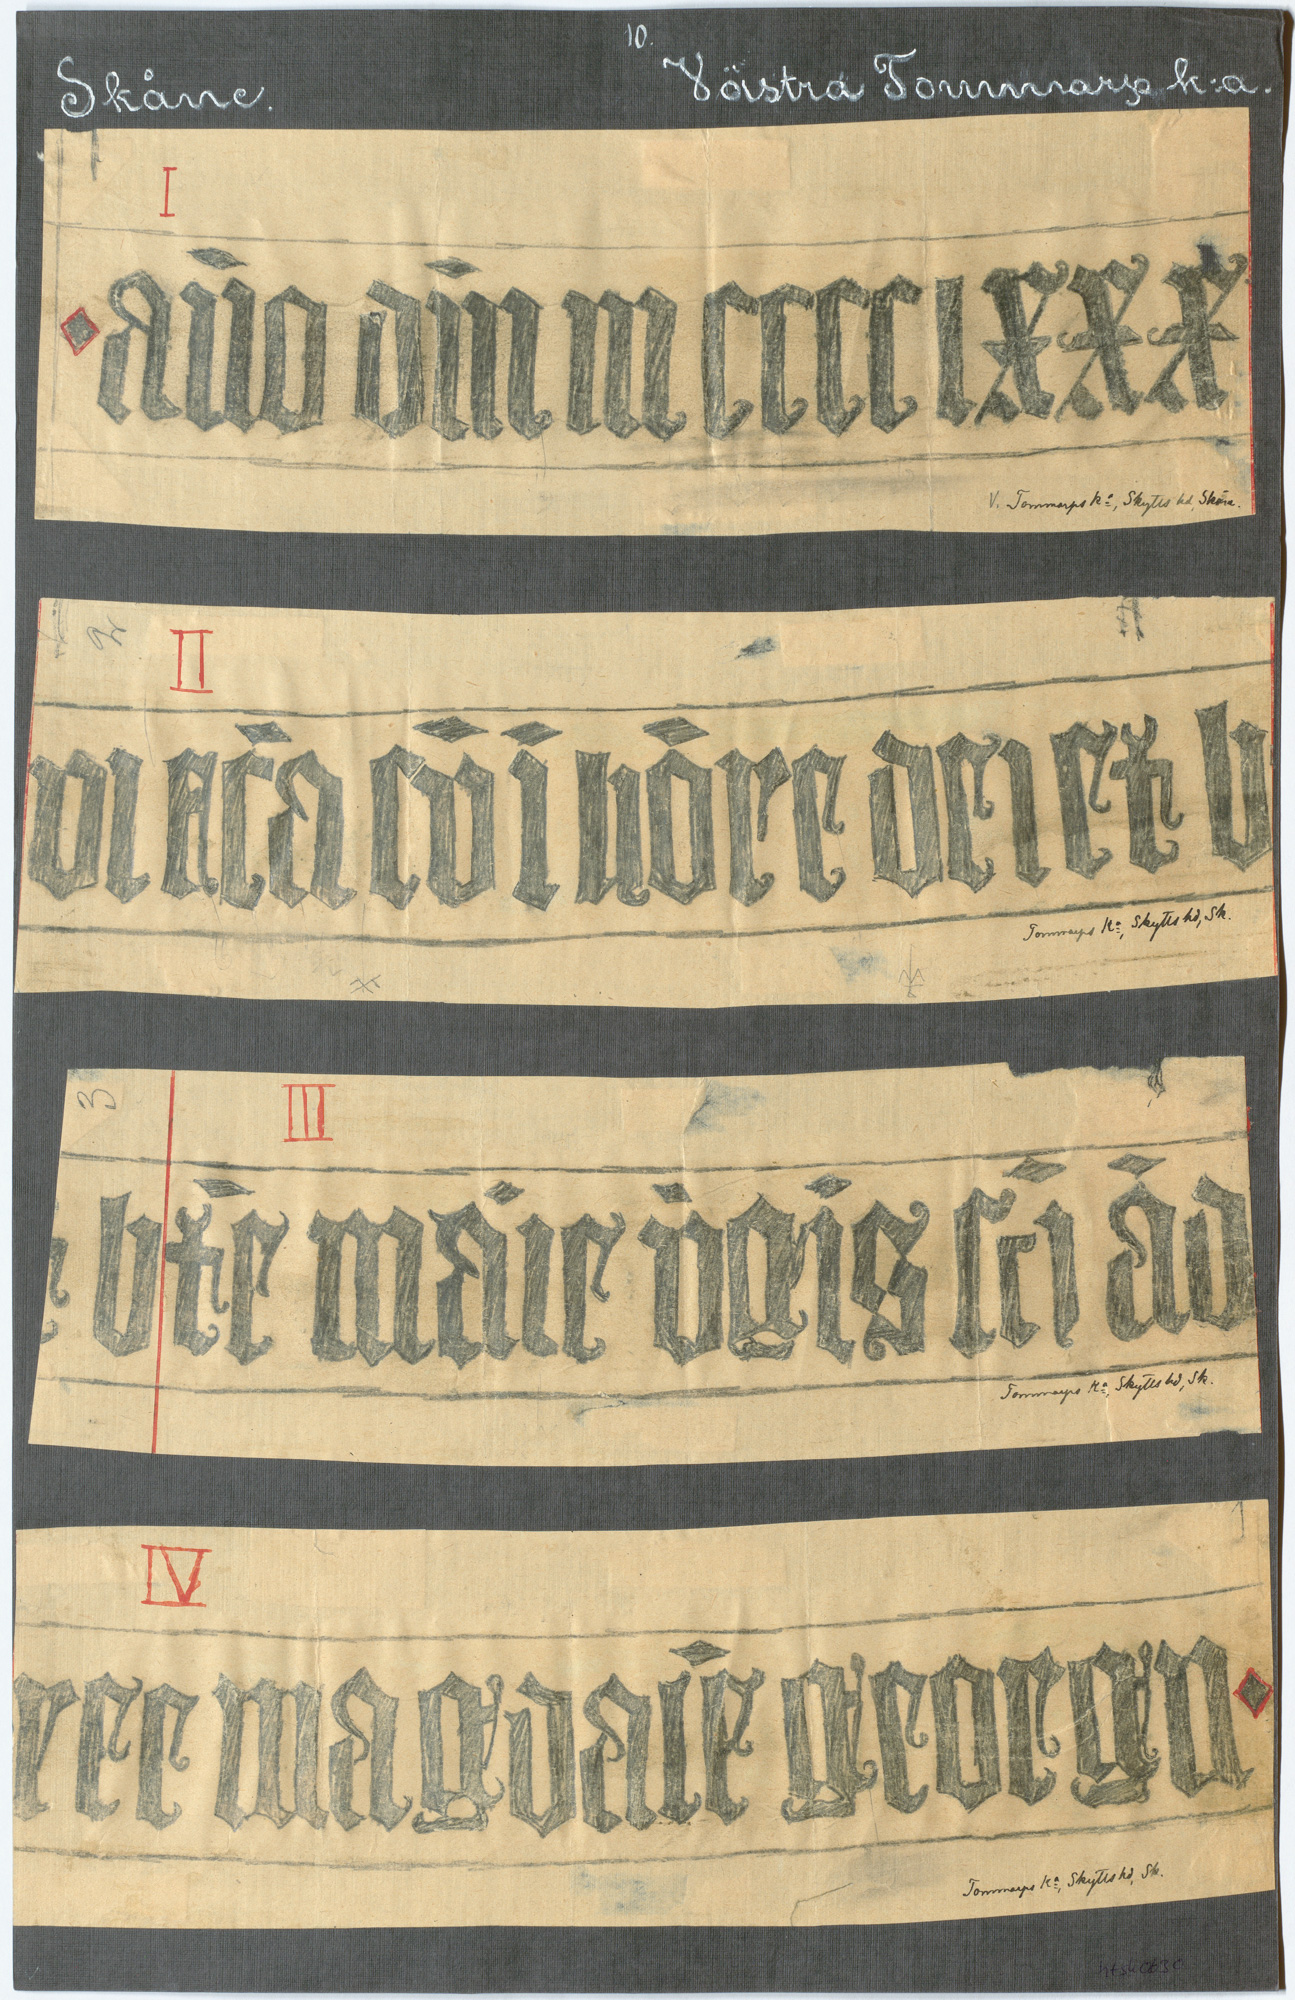 10.
Skåne. Västra Tommarp k:a.
I
año dīn m cccc lxxx
V. Tommarps Ka, Skytts hd, Skåne.
2
II
vi facā cō ī hōre dei et b
Tommarps Ka, Skytts hd, Sk.
3
III
bte maīe v̄gīs scī ād
Tommarps Ka, Skytts hd, Sk.
IV
ree magdalīe georgii
Tommarps Ka, Skytts hd, Sk.